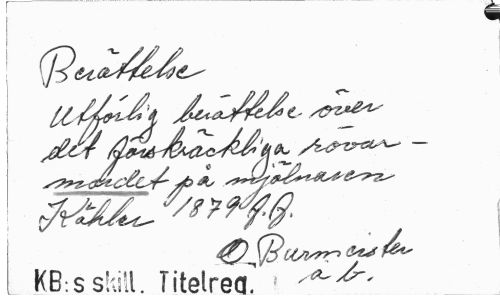 Berättelse
Utförlig berättelse över
det förskräckliga rövar-
mordet på mjölnaren
Kähler 1879 J.J.
O. Burmeister
a b.
KB:s skill. Titelreg.